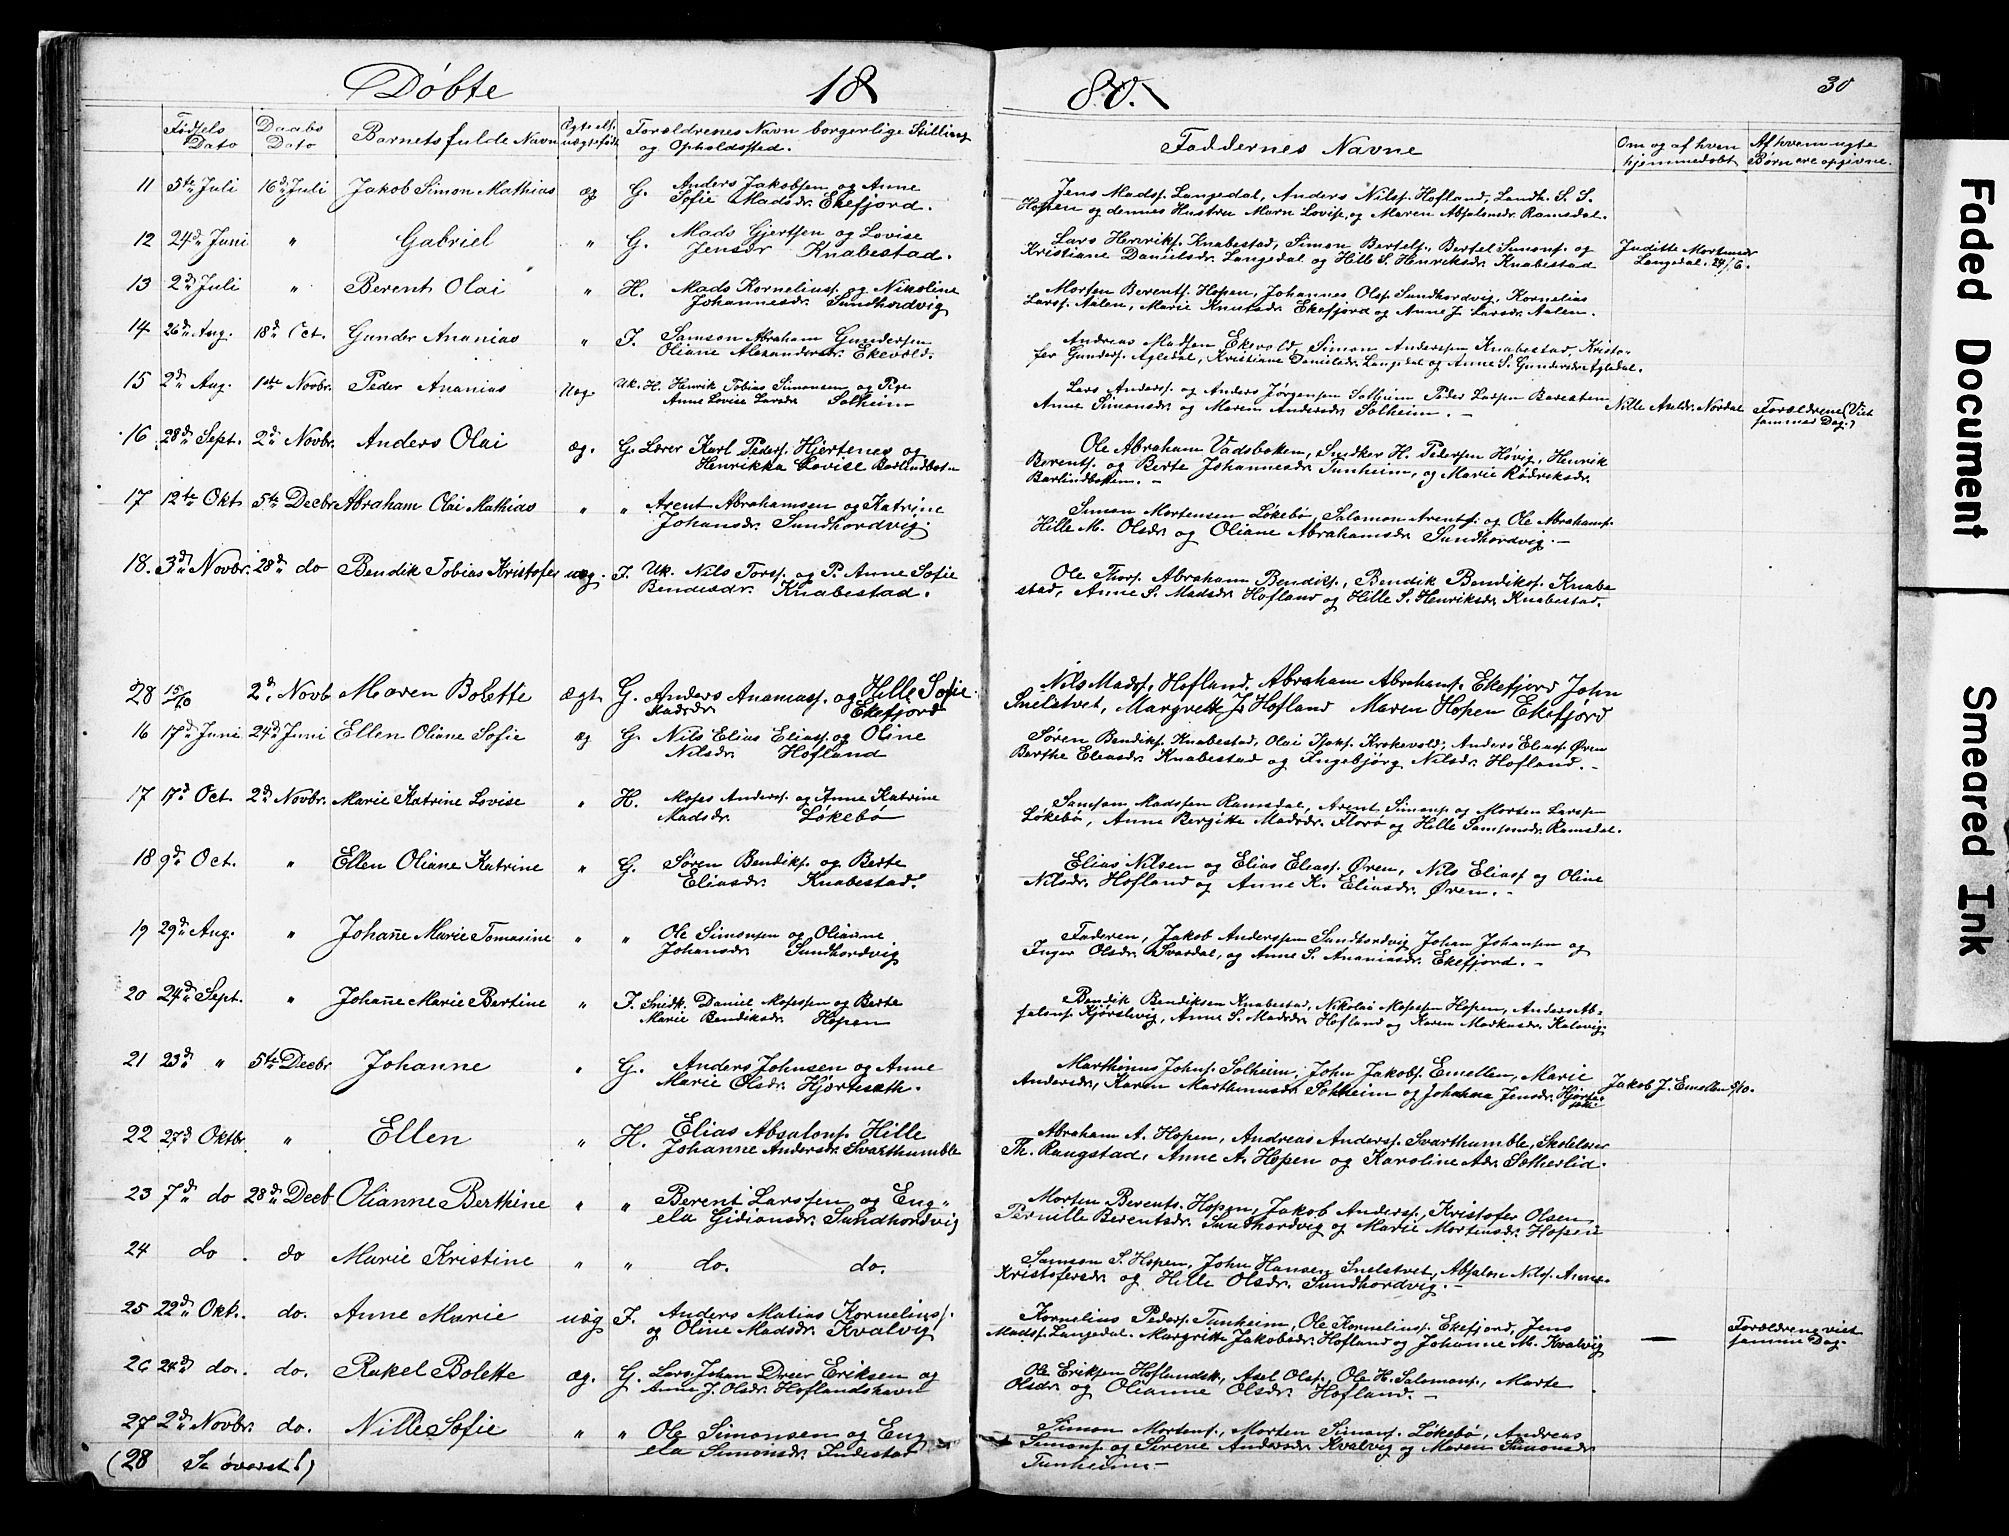 Döbte 18 80. 30
Födsels Dato
Daabs Dato
Barnets fulde Navn
Ægte ell. uægtefödt
Forældrenes Navn borgerlige Stilling og Opholdssted.
Faddernes Navne
Om og af hvem hjemmedöbt
Af hvem uægte Börn ere opgivne.
11 5te Juli 16d Juli Jakob Simon Mathias æg G. Anders Jakobsen og Anne
Sofie Madsdr. Ekefjord.
Jens Mads. Langedal, Anders Nils. Hofland, Landh. S. S.
Hopen og dennes Hustru Marn Lovise, og Maren Absalonsdr. Ramsdal.
12 24d Juni " Gabriel " G. Mads Gjertsen og Lovise
Jensdr Knabestad.
Lars Henriks. Knabestad, Simon Bertels., Bertel Simons. og
Kristiane Danielsdr. Langedal og Hille S. Henriksdr. Knabestad
Juditte Mortensdr
Langedal. 24/6.
13 2d Juli " Berent Olai " H. Mads Kornelius. og Nikoline
Johannesdr. Sundhordvig
Morten Berents. Hopen, Johannes Ols. Sundhordvig, Kornelius
Lars. Aalen, Marie Knutsdr. Ekefjord og Anne J. Larsdr. Aalen.
14 26d Aug. 18d Oct. Gunder Ananias " I. Samson Abraham Gundersen
Oliane Alexandersdr. Ekevold.
Andreas Madsen Ekevold, Simon Andersen Knabestad, Kristo-
fer Gunders. Agledal, Kristiane Danielsdr. Langedal og Anne S. Gundersdr. Agledal.
15 2d Aug. 1ste Novbr. Peder Ananias Uæg. Uk. H. Henrik Tobias Simonsen og Pige
Anne Lovise Larsdr. Solheim
Lars Anders. og Anders Jörgensen Solheim Peder Larsen Baresten
Anne Simonsdr. og Maren Andersdr. Solheim. -
Nille Axeldr. Nordal
Forældrene (Viet
sammes Dag.)
16 28d Sept. 2d Novbr. Anders Olai æg. G. Lærer Karl Peders. Hjertenes og
Henrikka Lovise Barlindbotn
Ole Abraham Vadsboken, Snedker H. Pedersen Hövig, Henrik
Berents. og Berte Johannesdr. Tunheim, og Marie Rödriksdr.
Barlindbotten. -
17 12te Okt 5te Decbr Abraham Olai Mathias " " Arent Abrahamsen og Katrine
Johansdr. Sundhordvig.
Simon Mortensen Lökebö, Salomon Arents. og Ole Abrahams.
Hille M. Olsdr. og Oliane Abrahamsdr. Sundhordvig. -
18. 3d Novbr. 28d do Bendik Tobias Kristofer uæg. I. Uk. Nils Tors. og P. Anne Sofie
Bendiksdr. Knabestad.
Ole Thors. Abraham Bendiks., Bendik Bendiks. Knabe
stad, Anne S. Madsdr. Hofland og Hille S. Henriksdr. Knabestad.
28 15/10 2d Novb Maren Bolette ægt G. Anders Ananias. og Hille Sofie
Madsdr Ekefjord
Nils Mads. Hofland, Abraham Abrahams. Ekefjord John
Snelstvet, Margrette J. Hofland Maren Hopen Ekefjord
16 17d Juni 24d Juni Ellen Oliane Sofie æg G. Nils Elias Elias. og Oline
Nilsdr. Hofland
Sören Bendiks. Knabestad, Olai Isaks. Krokevold, Anders Elias. Ören
Berthe Eliasdr. Knabestad og Ingebjörg Nilsdr. Hofland. -
17 17d Oct. 2d Novbr. Marie Katrine Lovise " H. Moses Anders. og Anne Katrine
Madsdr. Lökebö
Samson Madssen Ramsdal, Arent Simons. og Morten Larssen
Lökebö, Anne Bergitte Madsdr. Florö og Hille Samsonsdr. Ramsdal.
18 9d Oct. " Ellen Oliane Katrine " G. Sören Bendiks. og Berte
Eliasdr. Knabestad.
Elias Nilsen og Elias Elias. Ören, Nils Elias. og Oline
Nilsdr. Hofland og Anne K. Eliasdr. Ören. -
19 29d Aug. " Johañe Marie Tomasine " " Ole Simonsen og Olianne
Johansdr. Sundhordvig
Faderen, Jakob Anderssen Sundhordvig Johan Johansen og
Inger Olsdr. Svardal, og Anne S. Ananiasdr. Ekefjord. -
20 24d Sept. " Johañe Marie Bertine " I. Snedk. Daniel Mosessen og Berte
Marie Bendiksdr. Hopen
Bendik Bendiksen Knabestad, Nikolai Mosessen Hopen, Anders Ab-
salons. Kjörslevig, Anne S. Madsdr. Hofland og Karen Markusdr. Kalvig.
21 23d " 5te Decbr Johanne " G. Anders Johnsen og Anne
Marie Olsdr. Hjortesæth.
Marthinus Johns. Solheim, John Jakobs. Emellem, Marie
Andersdr., Karen Marthinusdr. Solheim og Johanna Jensdr. Hjorte-
sæth
Jakob J. Emellem 5/10.
22 27d Oktbr. " Ellen " H. Elias Absalons. Hille
Johanne Andersdr. Svarthumble
Abraham A. Hopen, Andreas Anders. Svarthumble, Skolelærer
Th. Rangstad, Anne A. Hopen og Karoline Adr. Sætherlid.
23 7d do 28d Decb Olianne Berthine " " Berent Larssen og Eng-
ela Gidionsdr. Sundhordvig
Morten Berents. Hopen, Jakob Anders., Kristofer Olsen
Pernille Berentsdr. Sundhordvig og Marie Mortensdr. Hopen
24 do. do Marie Kristine " " do. do.
Samson S. Hopen, John Hansen Snelstvet, Absalon Nils. Anne
Kristofersdr og Hille Olsdr. Sundhordvig. -
25 22d Okt. do. Anne Marie uæg I. Anders Matias Kornelius.
og Oline Madsdr. Kvalvig
Kornelius Peders. Tunheim, Ole Kornelius. Ekefjord, Jens
Mads. Langedal. Margritte Jakobsdr. Hofland og Johanne M. Kvalvig
—
Forældrene viet
samme Dag.
26 24d do. do. Rakel Bolette æg. G. Lars Johan Dreer Eriksen og
Anne J. Olsdr. Hoflandshavn
Ole Eriksen Hoflandsk, Axel Ols., Ole H. Salomons., Marte
Olsdr. og Olianne Olsdr. Hofland. -
27 2d Novbr. do. Nille Sofie " " Ole Simonsen og Eng
ela Simonsdr. Indestad
Simon Mortens., Morten Simons. Lökebö, Andreas
Simons. og Serene Andersdr. Kvalvig og Maren Simonsdr.
Tunheim. -
(28 Se överst!)
Faded Document
Smeared Ink